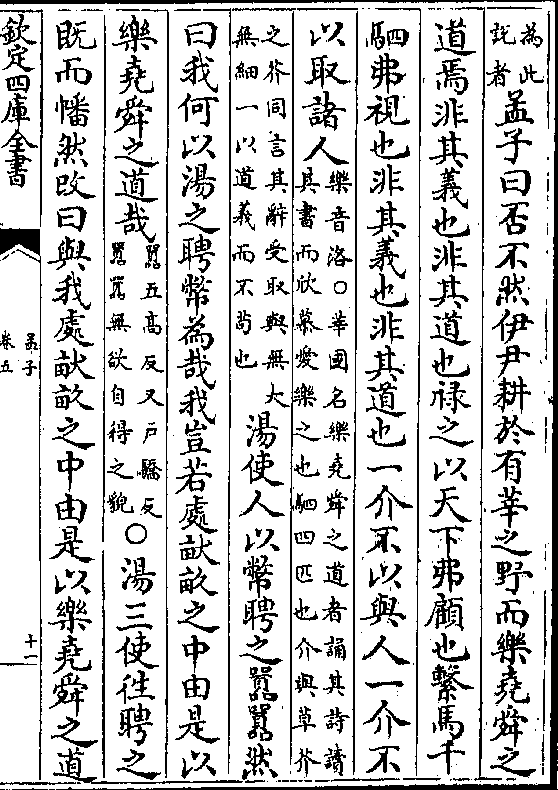 為此
說者
孟子曰否不然伊尹耕於有莘之野而樂堯舜之
道焉非其義也非其道也禄之以天下弗顧也繫馬千
駟弗視也非其義也非其道也一介不以與人一介不
以取諸人
樂音洛○莘國名樂堯舜之道者誦其詩讀
其書而欣慕愛樂之也駟四匹也介與草芥
之芥同言其辭受取與無大
無細一以道義而不苟也
湯使人以幣聘之囂囂然
曰我何以湯之聘幣為哉我豈若處畎畝之中由是以
樂堯舜之道哉
囂五高反又户驕反
囂囂無欲自得之貌
○湯三使往聘之
既而幡然改曰與我處畎畝之中由是以樂堯舜之道
欽定四庫全書
孟子
卷五
十一